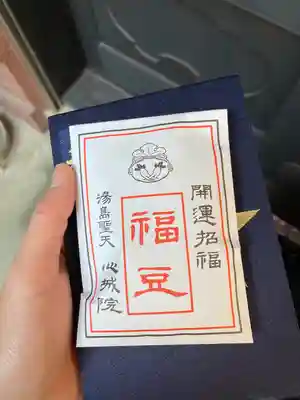 開運招福
福豆
湯島聖天
心城院